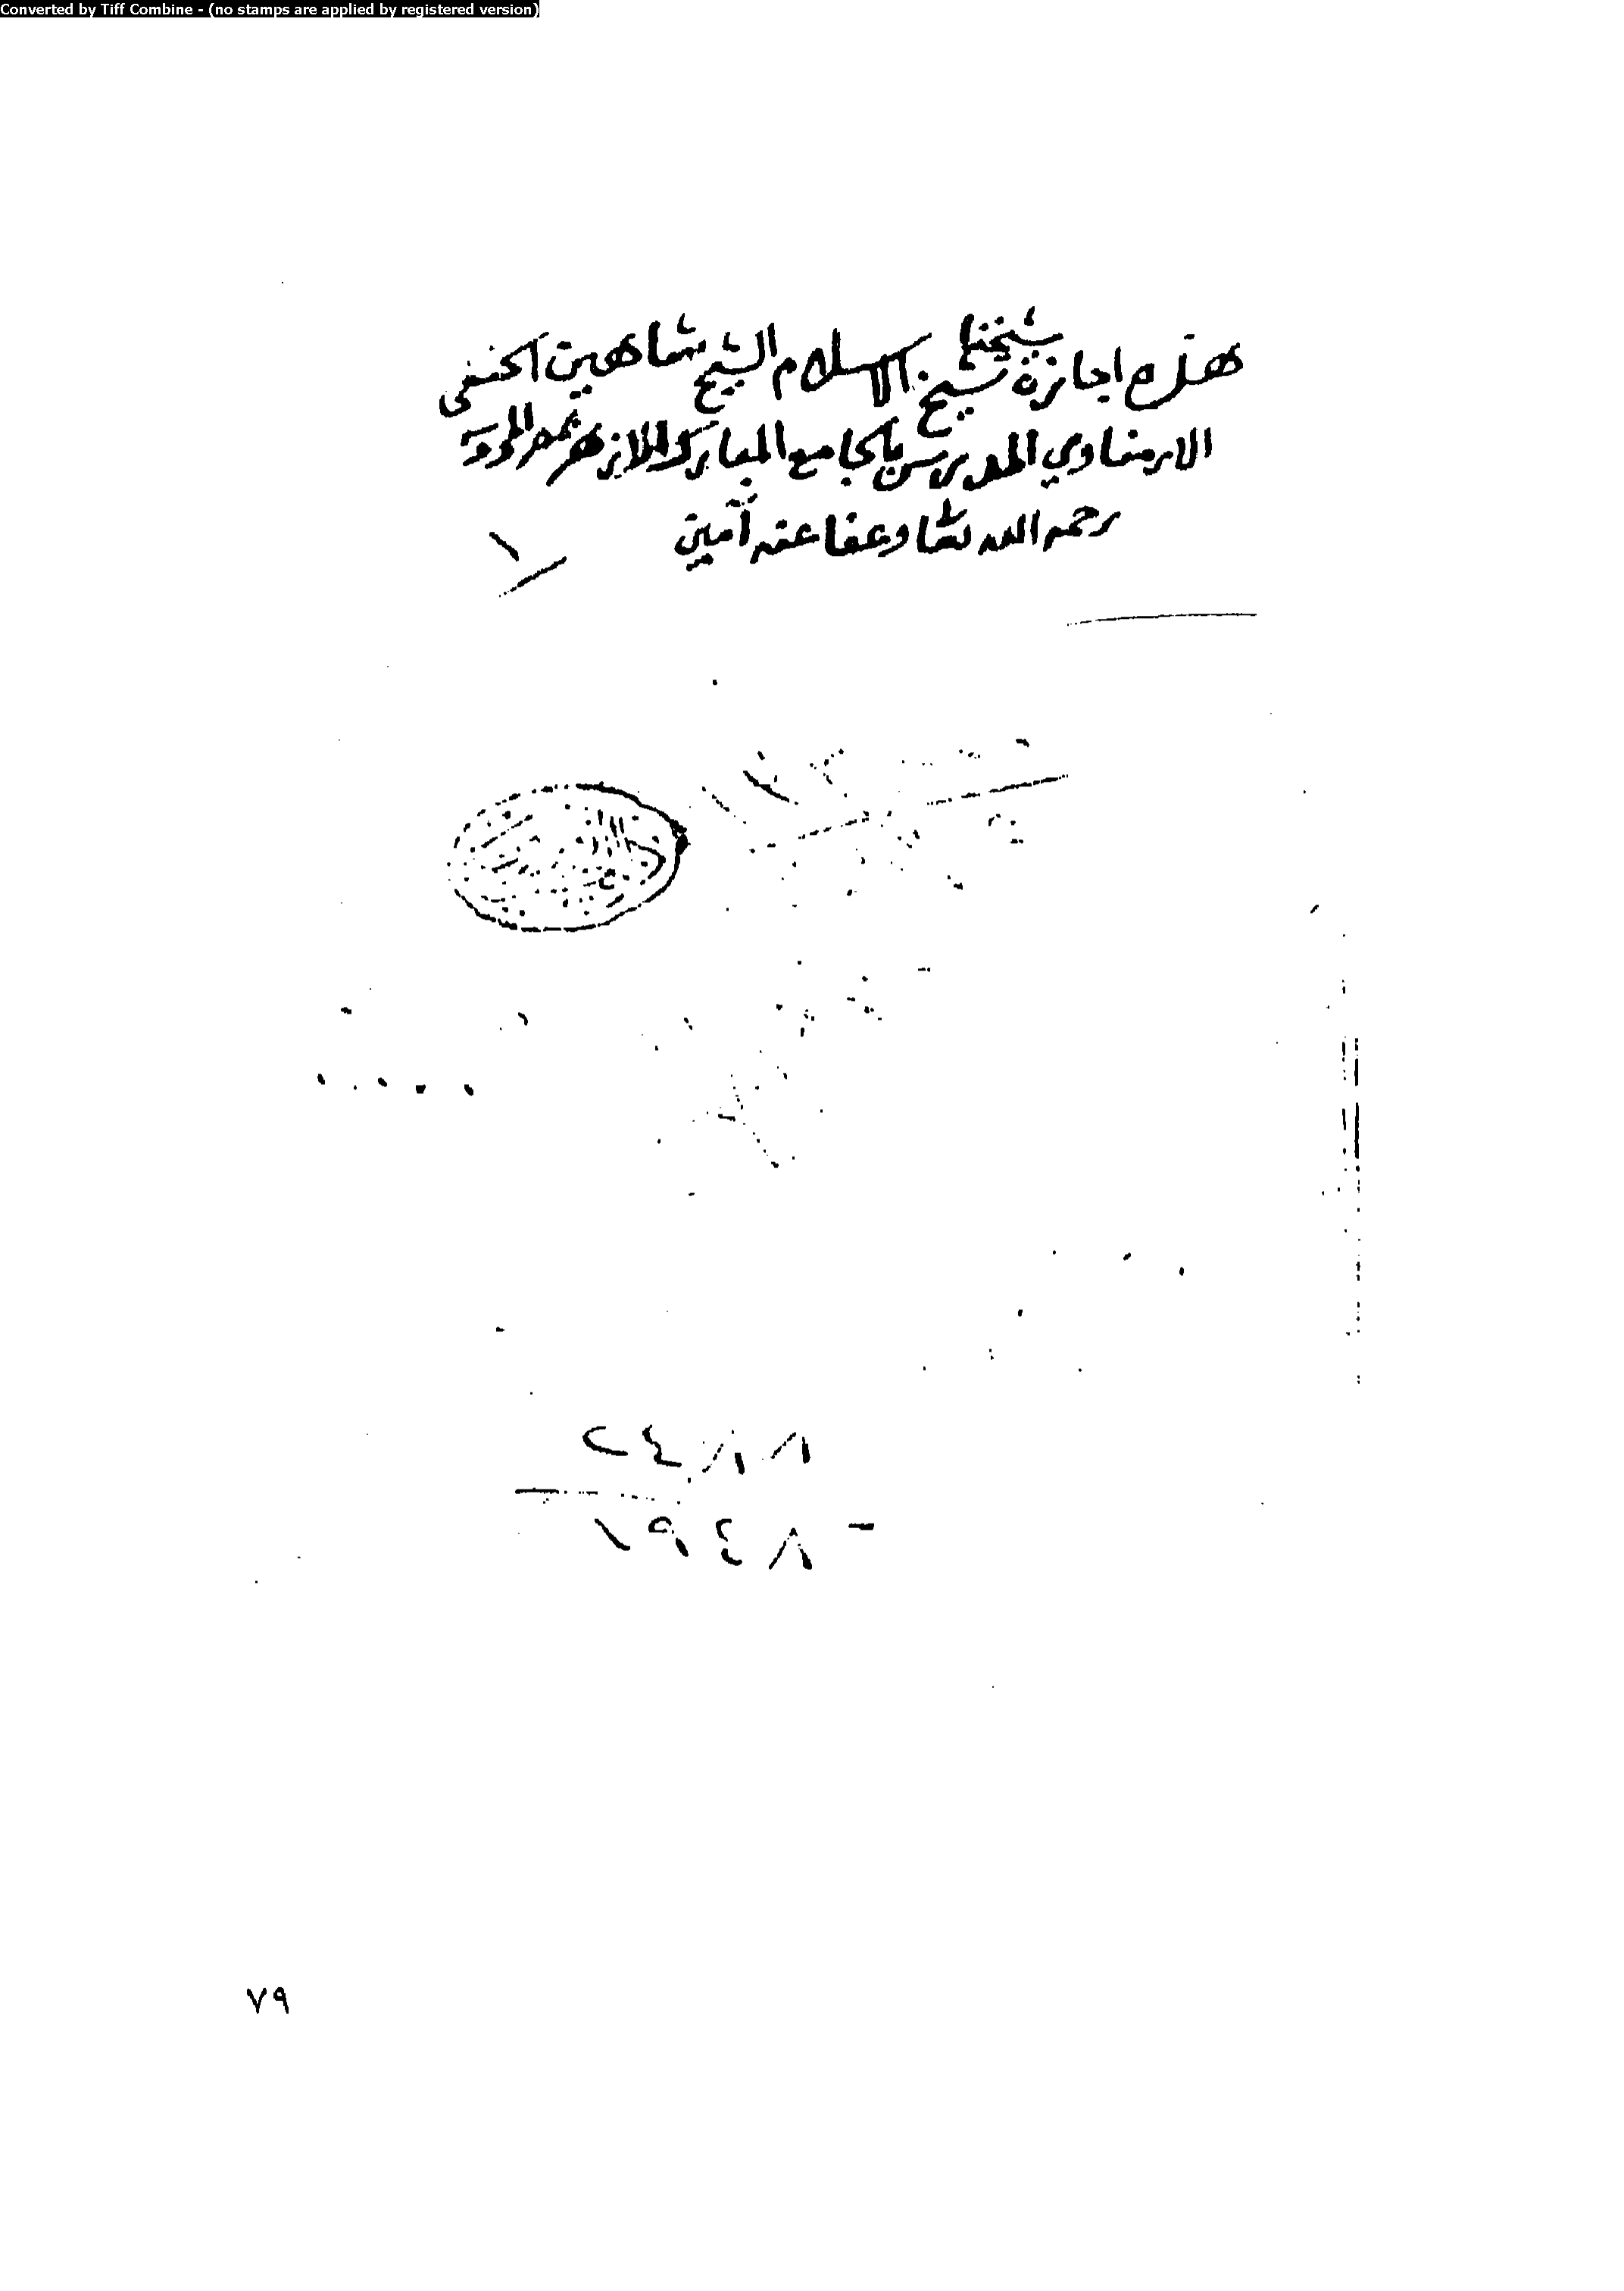 Converted by Tiff Combine - (no stamps are applied by registered version)
هذه اجازة شيخنا شيخ الاسلام الشيخ شاهين الحنفي
الارمناوي المدرس بالجامع المبارك الازهر بمصر المحروسة
رحمه الله تعا وعفا عنه آمين
٢٤٨٨
١٩٤٨
٧٩